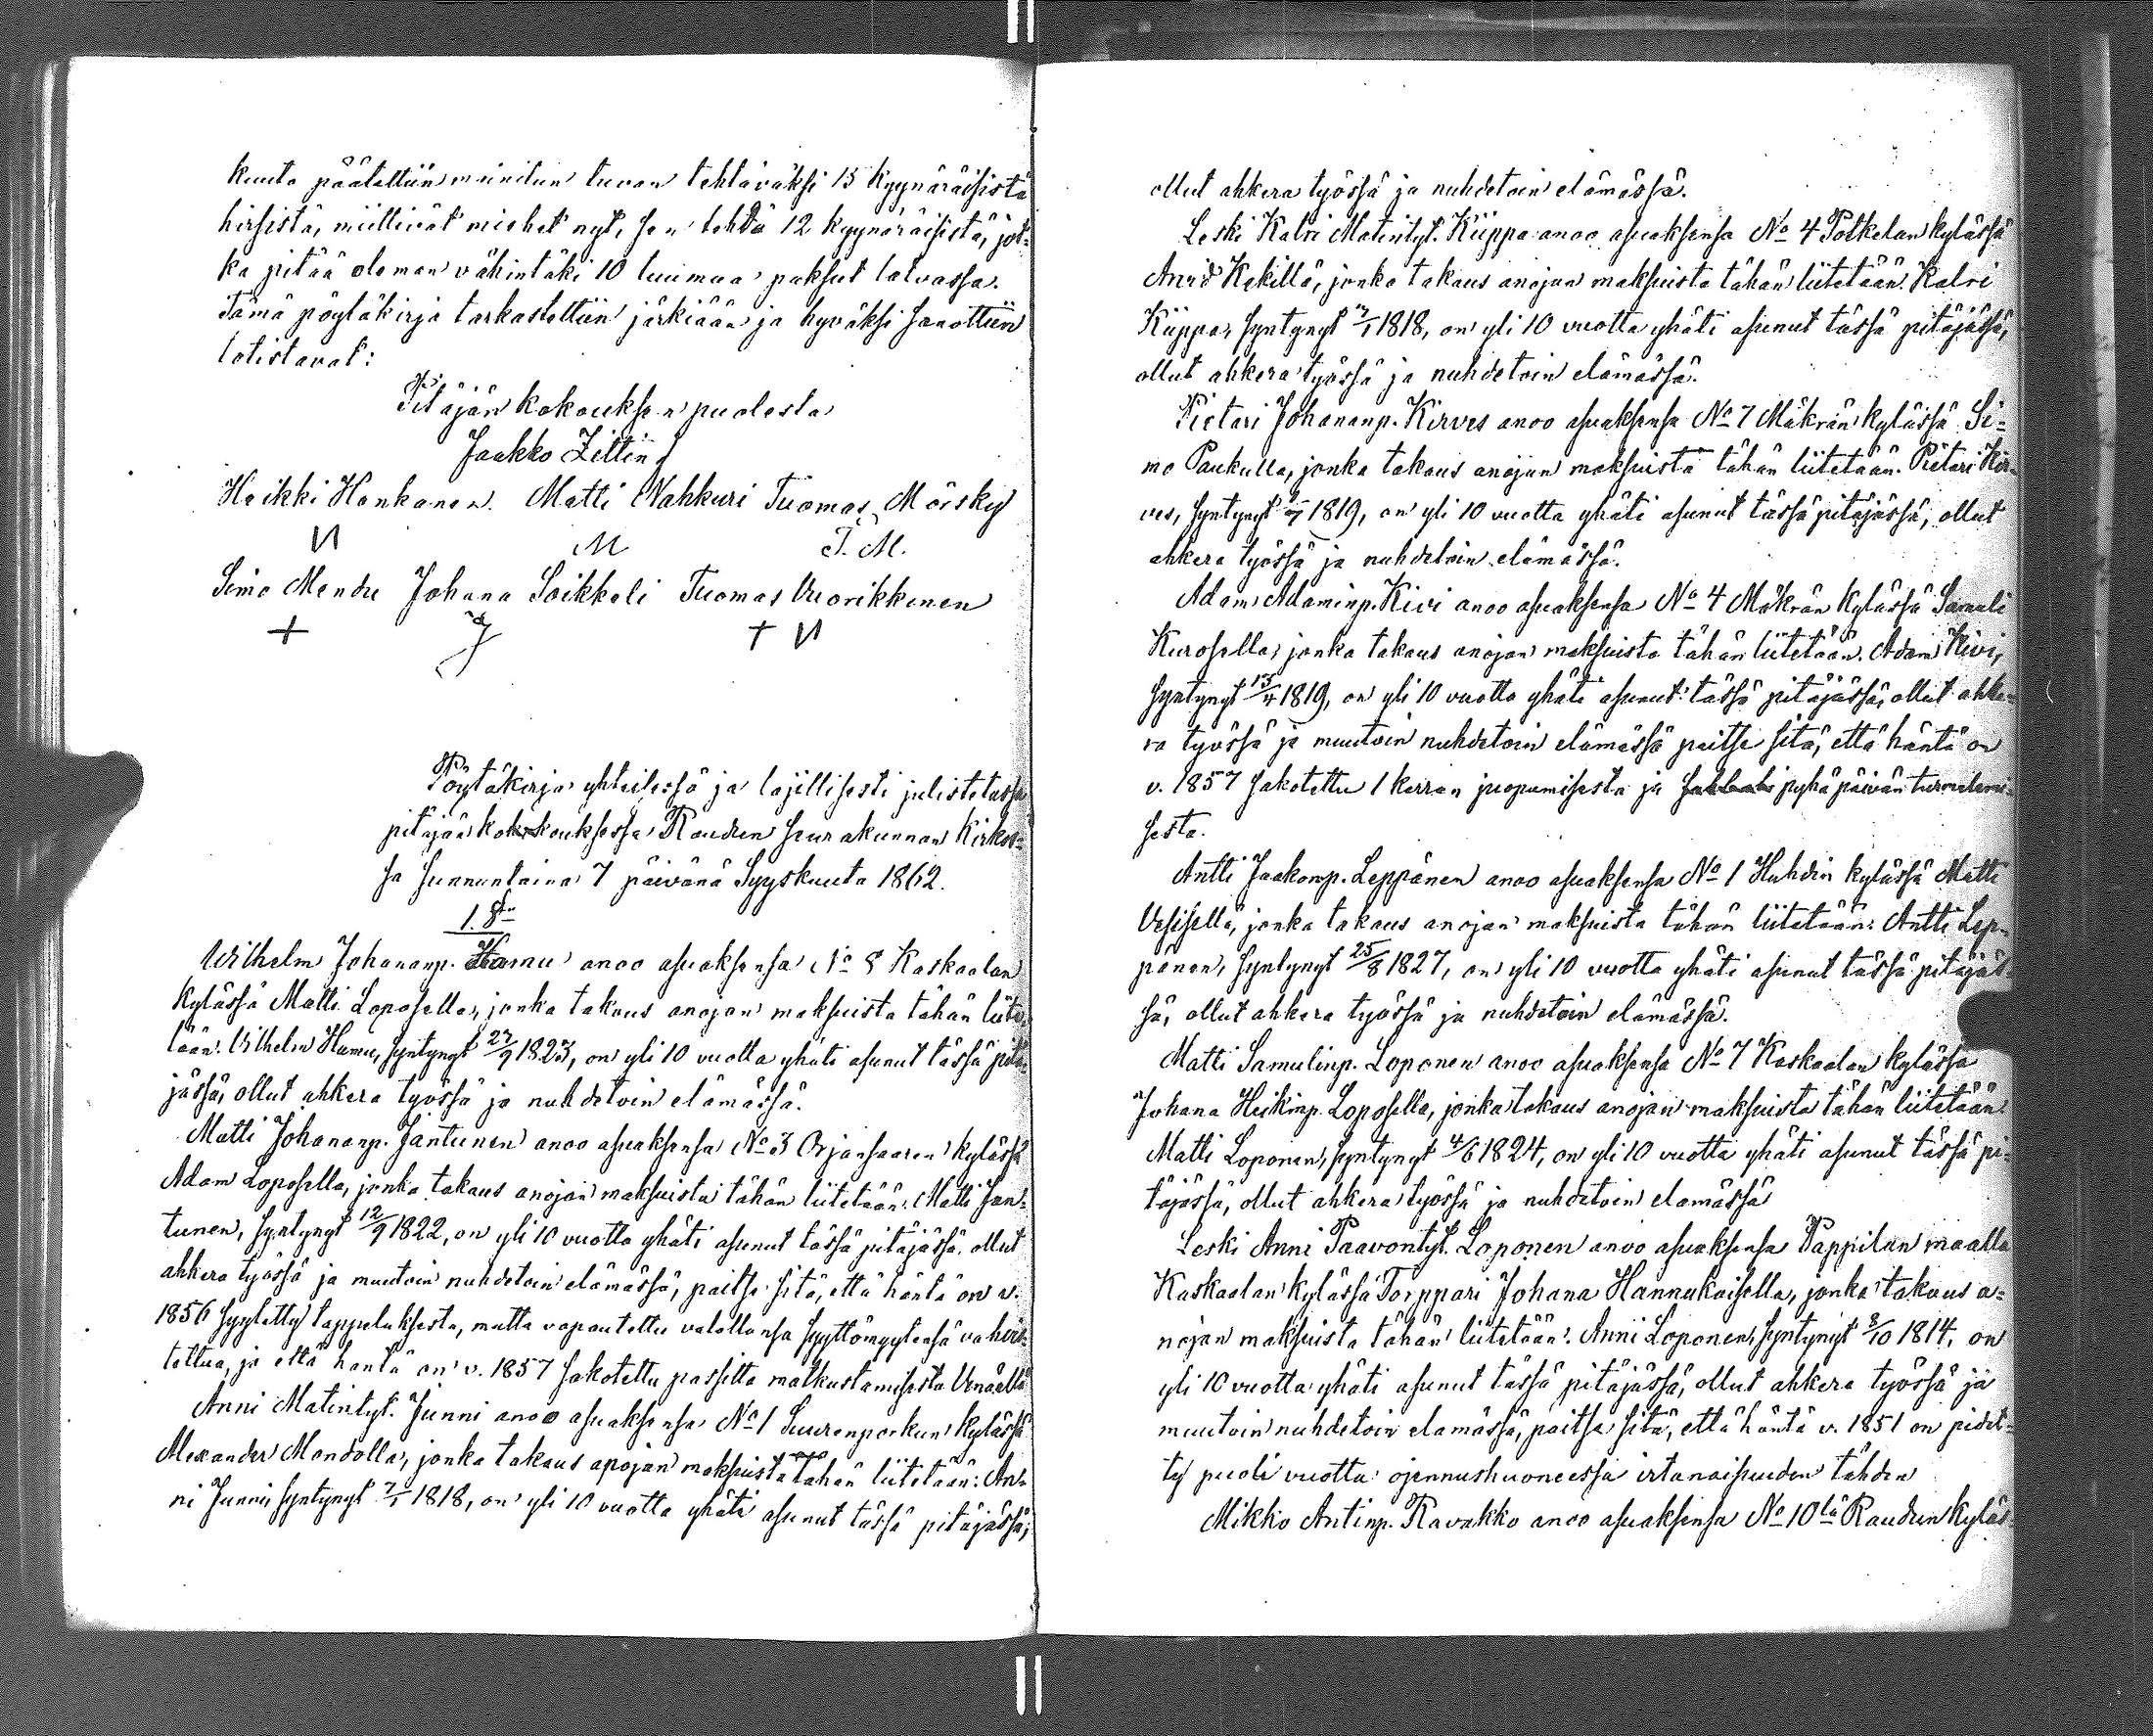 kuuta päätettiin mainitun tuvan tehtäväksi 15 kyynäräisistä
hirsistä, miettivät miehet nyt, sen tehtä 12 kyynäräisistä, jot-
ka pitää oleman vähintäki 10 tuumaa paksut latvassa.
Tämä pöytäkirja tarkastettiin järkiään ja hyväksi sanottiin
totistavat:
Pitäjän kokouksen puolesta
Jaakko Zitting
Heikki Honkanen. Matti Nahkuri Tuomas Mörsky
M T. M.
Simo Mendu Johana Soikkeli Tuomas Vuorikkinen
+ J +
Pöytäkirja yhteisessä ja lajillisesti julistetussa
pitäjän kokouksessa Raudun seurakunnan kirkos-
sa sunnuntaina 7 päivänä Syyskuuta 1862.
1. §
Wilhelm Johananp. Hamu anoo asuaksensa No 8 Kaskaalan
kylässä Matti Loposella, jonka takaus anojan maksuista tähän liite-
tään. Vilhelm Hamu, syntynyt 27/9 1823, on yli 10 vuotta yhäti asunut tässä pitä-
jässä, ollut ahkera työssä ja nuhdetoin elämässä.
Matti Johananp. Jantunen anoo asuaksensa No 3 Orjansaaren kylässä
Adam Loposella, jonka takaus anojan maksuista tähän liitetään. Matti Jan-
tunen, syntynyt 12/9 1822, on yli 10 vuotta yhäti asunut tässä pitäjässä, ollut
ahkera työssä ja muutoin nuhdetoin elämässä, paitse sitä, että häntä on v.
1856 syytetty tappeluksesta, mutta vapautettu valallansa syyttömyytensä vahvis-
tettua, ja että häntä on v. 1857 sakotettu passitta matkustamisesta Venäellä
Anni Matintyt. Junni anoo asuaksensa No 1 Suurenporkun kylässä
Alexander Mondolla, jonka takaus anojan maksuista tähän liitetään: An-
ni Junni, syntynyt 7/1 1818, on yli 10 vuotta yhäti asunut tässä pitäjässä,
ollut ahkera työssä ja nuhdetoin elämässä.
Leski Katri Matintyt. Kiippa anoo asuaksensa No 4 Potkelan kylässä
Anrid Kekillä, jonka takaus anojan maksuista tähän liitetään. Katri
Kiippa, syntynyt 7/1 1818, on yli 10 vuotta yhäti asunut tässä pitäjässä,
ollut ahkera työssä ja nuhdetoin elämässä.
Pietari Johananp. Kirves anoo asuaksensa No 7 Mäkrän kylässä Si-
mo Paukulla, jonka takaus anojan maksuista tähän liitetään. Pietari Kir-
ves, syntynyt 1819, on yli 10 vuotta yhäti asunut tässä pitäjässä, ollut
ahkera työssä ja nuhdetoin elämässä.
Adam Adaminp. Kivi anoo asuaksensa No 4 Mäkrän kylässä Samuli
Kurosella, jonka takaus anojan maksuista tähän liitetään. Adam Kivi,
syntynyt 13/4 1819, on yli 10 vuotta yhäti asunut tässä pitäjässä, ollut ahke-
ra työssä ja muutoin nuhdetoin elämässä paitse sitä, että häntä on
v. 1857 sakotettu 1 kerran juopumisesta ja pyhä päivän turmelemi-
sesta.
Antti Jaakonp. Leppänen anoo asuaksensa No 1 Huhdin kylässä Matti
Vesisellä, jonka takaus anojan maksuista tähän liitetään: Antti Lep-
pänen, syntynyt 25/8 1827, on yli 10 vuotta yhäti asunut tässä pitäjäs-
sä, ollut ahkera työssä ja nuhdetoin elämässä.
Matti Samulinp. Loponen anoo asuaksensa No 7 Kaskaalan kylässä
Johana Heikinp. Loposella, jonka takaus anojan maksuista tähän liitetään
Matti Loponen, syntynyt 4/6 1824, on yli 10 vuotta yhäti asunut tässä pi-
täjässä, ollut ahkera työssä ja nuhdetoin elämässä
Leski Anni Paavontyt. Loponen anoo asuaksensa Pappilan maalla
Kaskaalan kylässä Torppari Johana Hannukaisella, jonka takaus a-
nojan maksuista tähän liitetään: Anni Loponen, syntynyt 3/10 1814, on
yli 10 vuotta yhäti asunut tässä pitäjässä, ollut ahkera työssä ja
muutoin nuhdetoin elämässä, paitse sitä, että häntä v. 1851 on pidet-
ty puoli vuotta ojennushuoneessa irtanaisuuden tähden
Mikko Antinp. Ravakko anoo asuaksensa No 10tä Raudun kyläs-